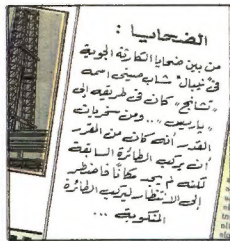 الضحايا :
من بين ضحايا الكارثة الجوية
في "نيبال" شاب صيني اسمه
"تشانج" كان في طريقه إلى
"باريس" .. ومن سخريات
القدر أنه كان من المقرر
أن يركب الطائرة السابقة
لكنه لم يجد مكاناً فاضطر
إلى الانتظار ليركب الطائرة
المنكوبة ...